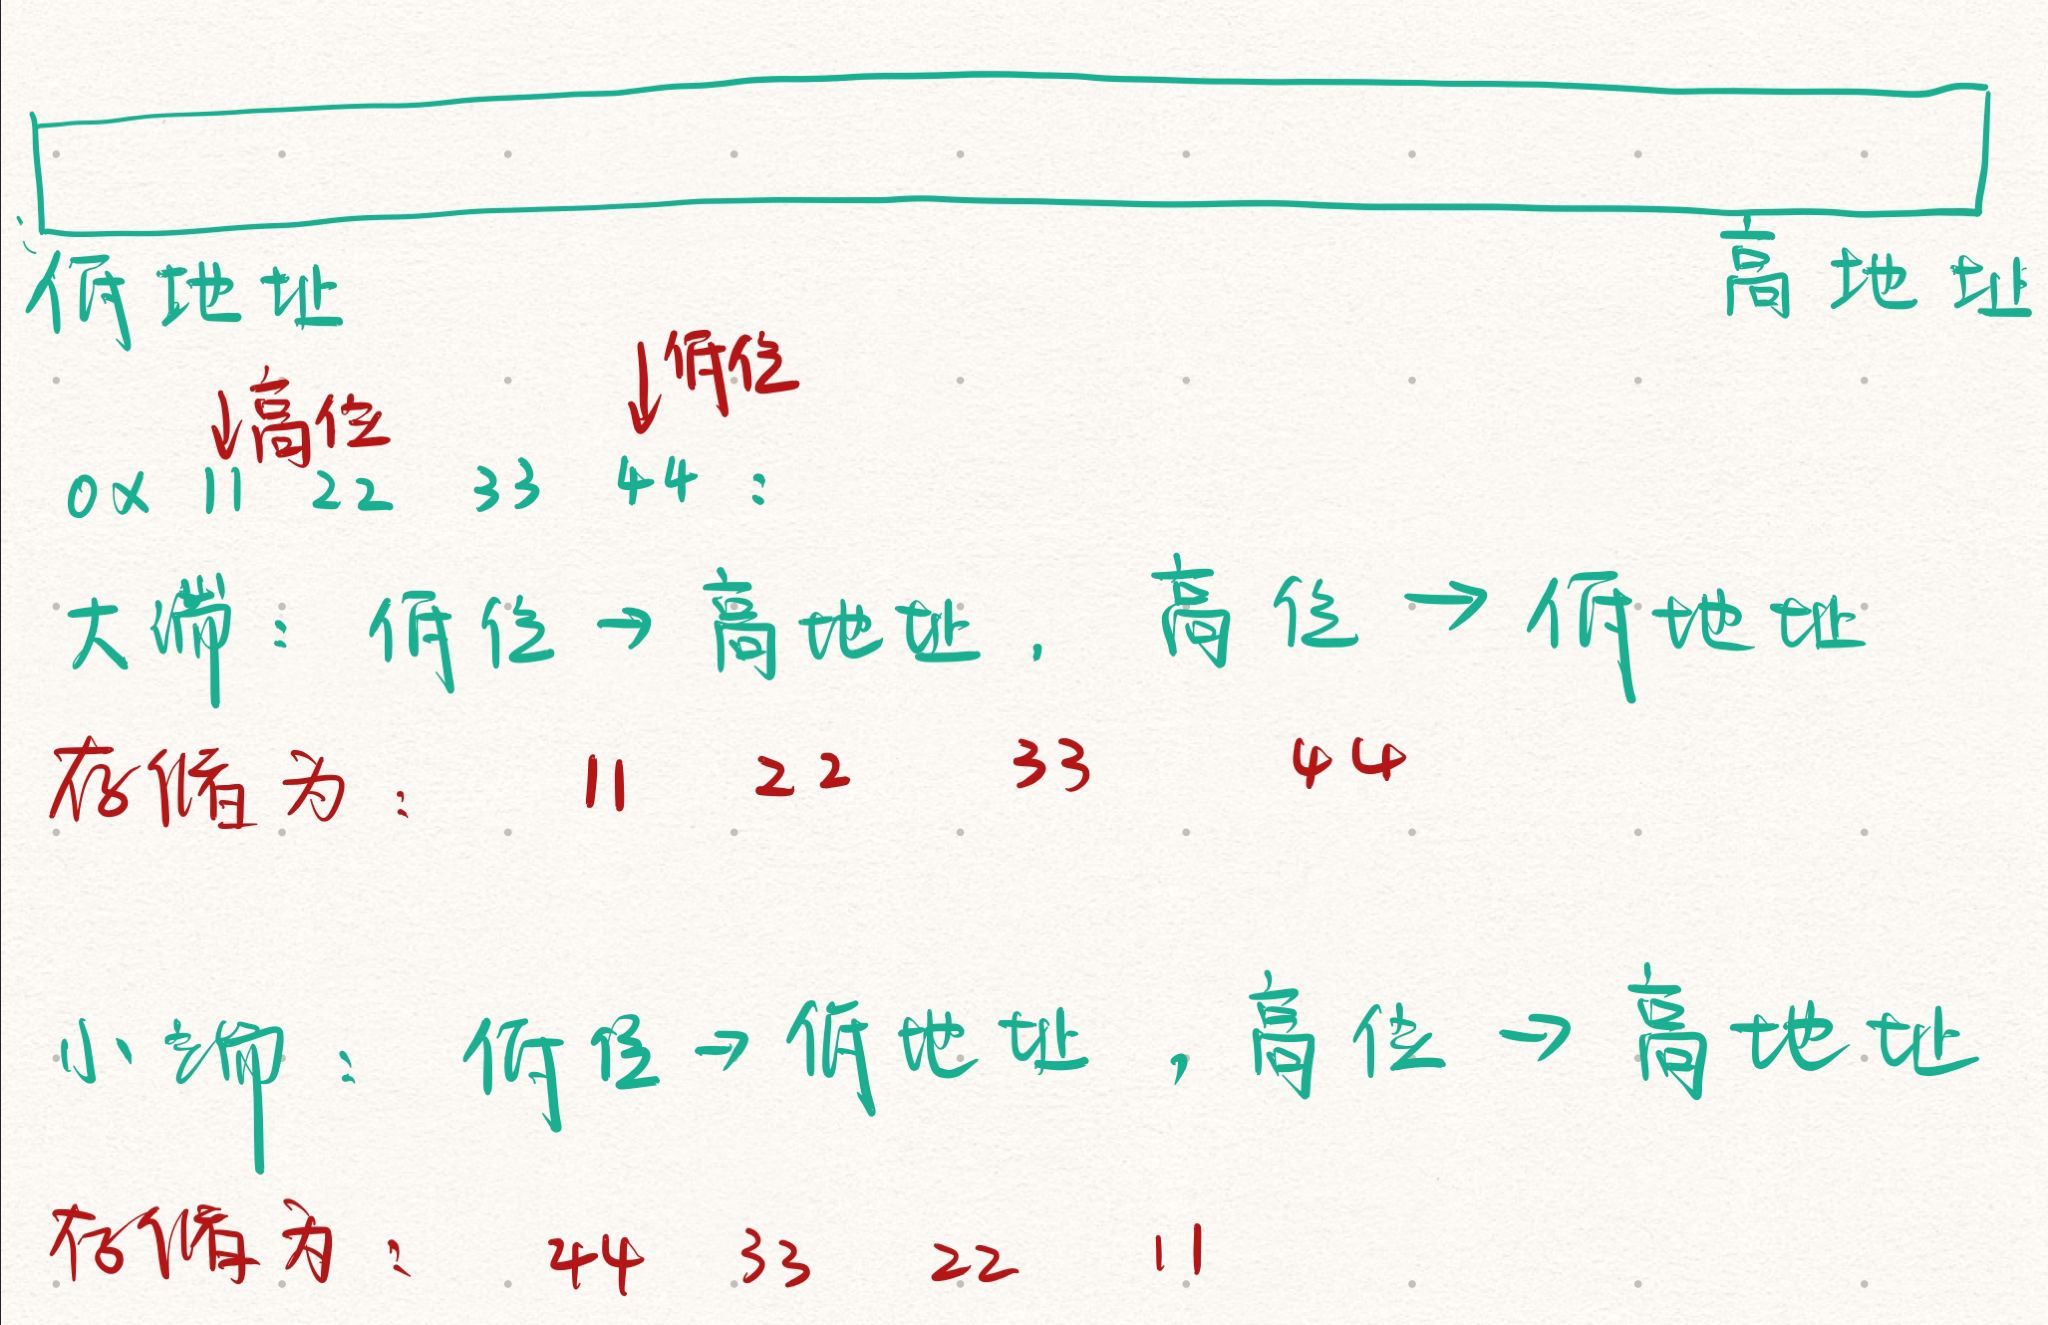 低地址 高地址
↓高位 ↓低位
0x 11 22 33 44 :
大端: 低位→高地址, 高位→低地址
存储为: 11 22 33 44
小端: 低位→低地址, 高位→高地址
存储为: 44 33 22 11